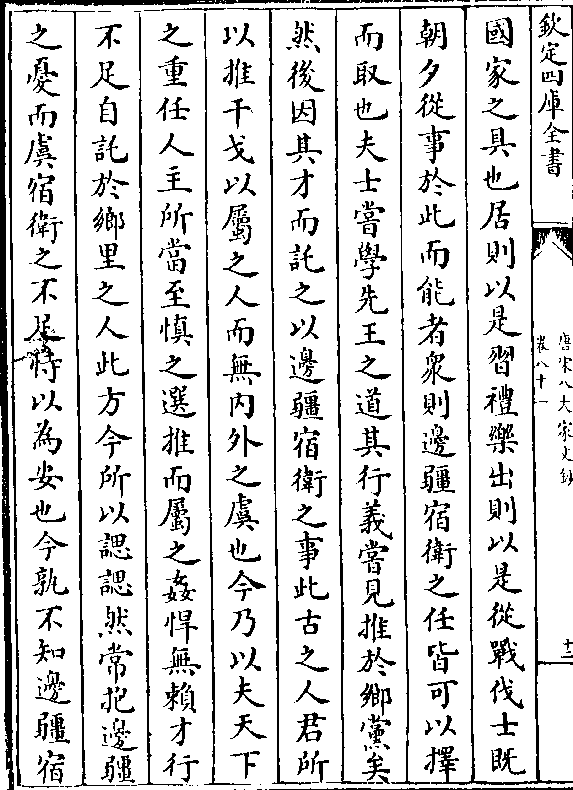 欽定四庫全書
唐宋八大家文鈔
卷八十一
十二
國家之具也居則以是習禮樂出則以是從戰伐士既
朝夕從事於此而能者衆則邊疆宿衛之任皆可以擇
而取也夫士嘗學先王之道其行義嘗見推於鄉黨矣
然後因其才而託之以邊疆宿衛之事此古之人君所
以推干戈以屬之人而無内外之虞也今乃以夫天下
之重任人主所當至慎之選推而屬之姦悍無賴才行
不足自託於鄉里之人此方今所以諰諰然常抱邊疆
之憂而虞宿衛之不足恃以為安也今孰不知邊疆宿